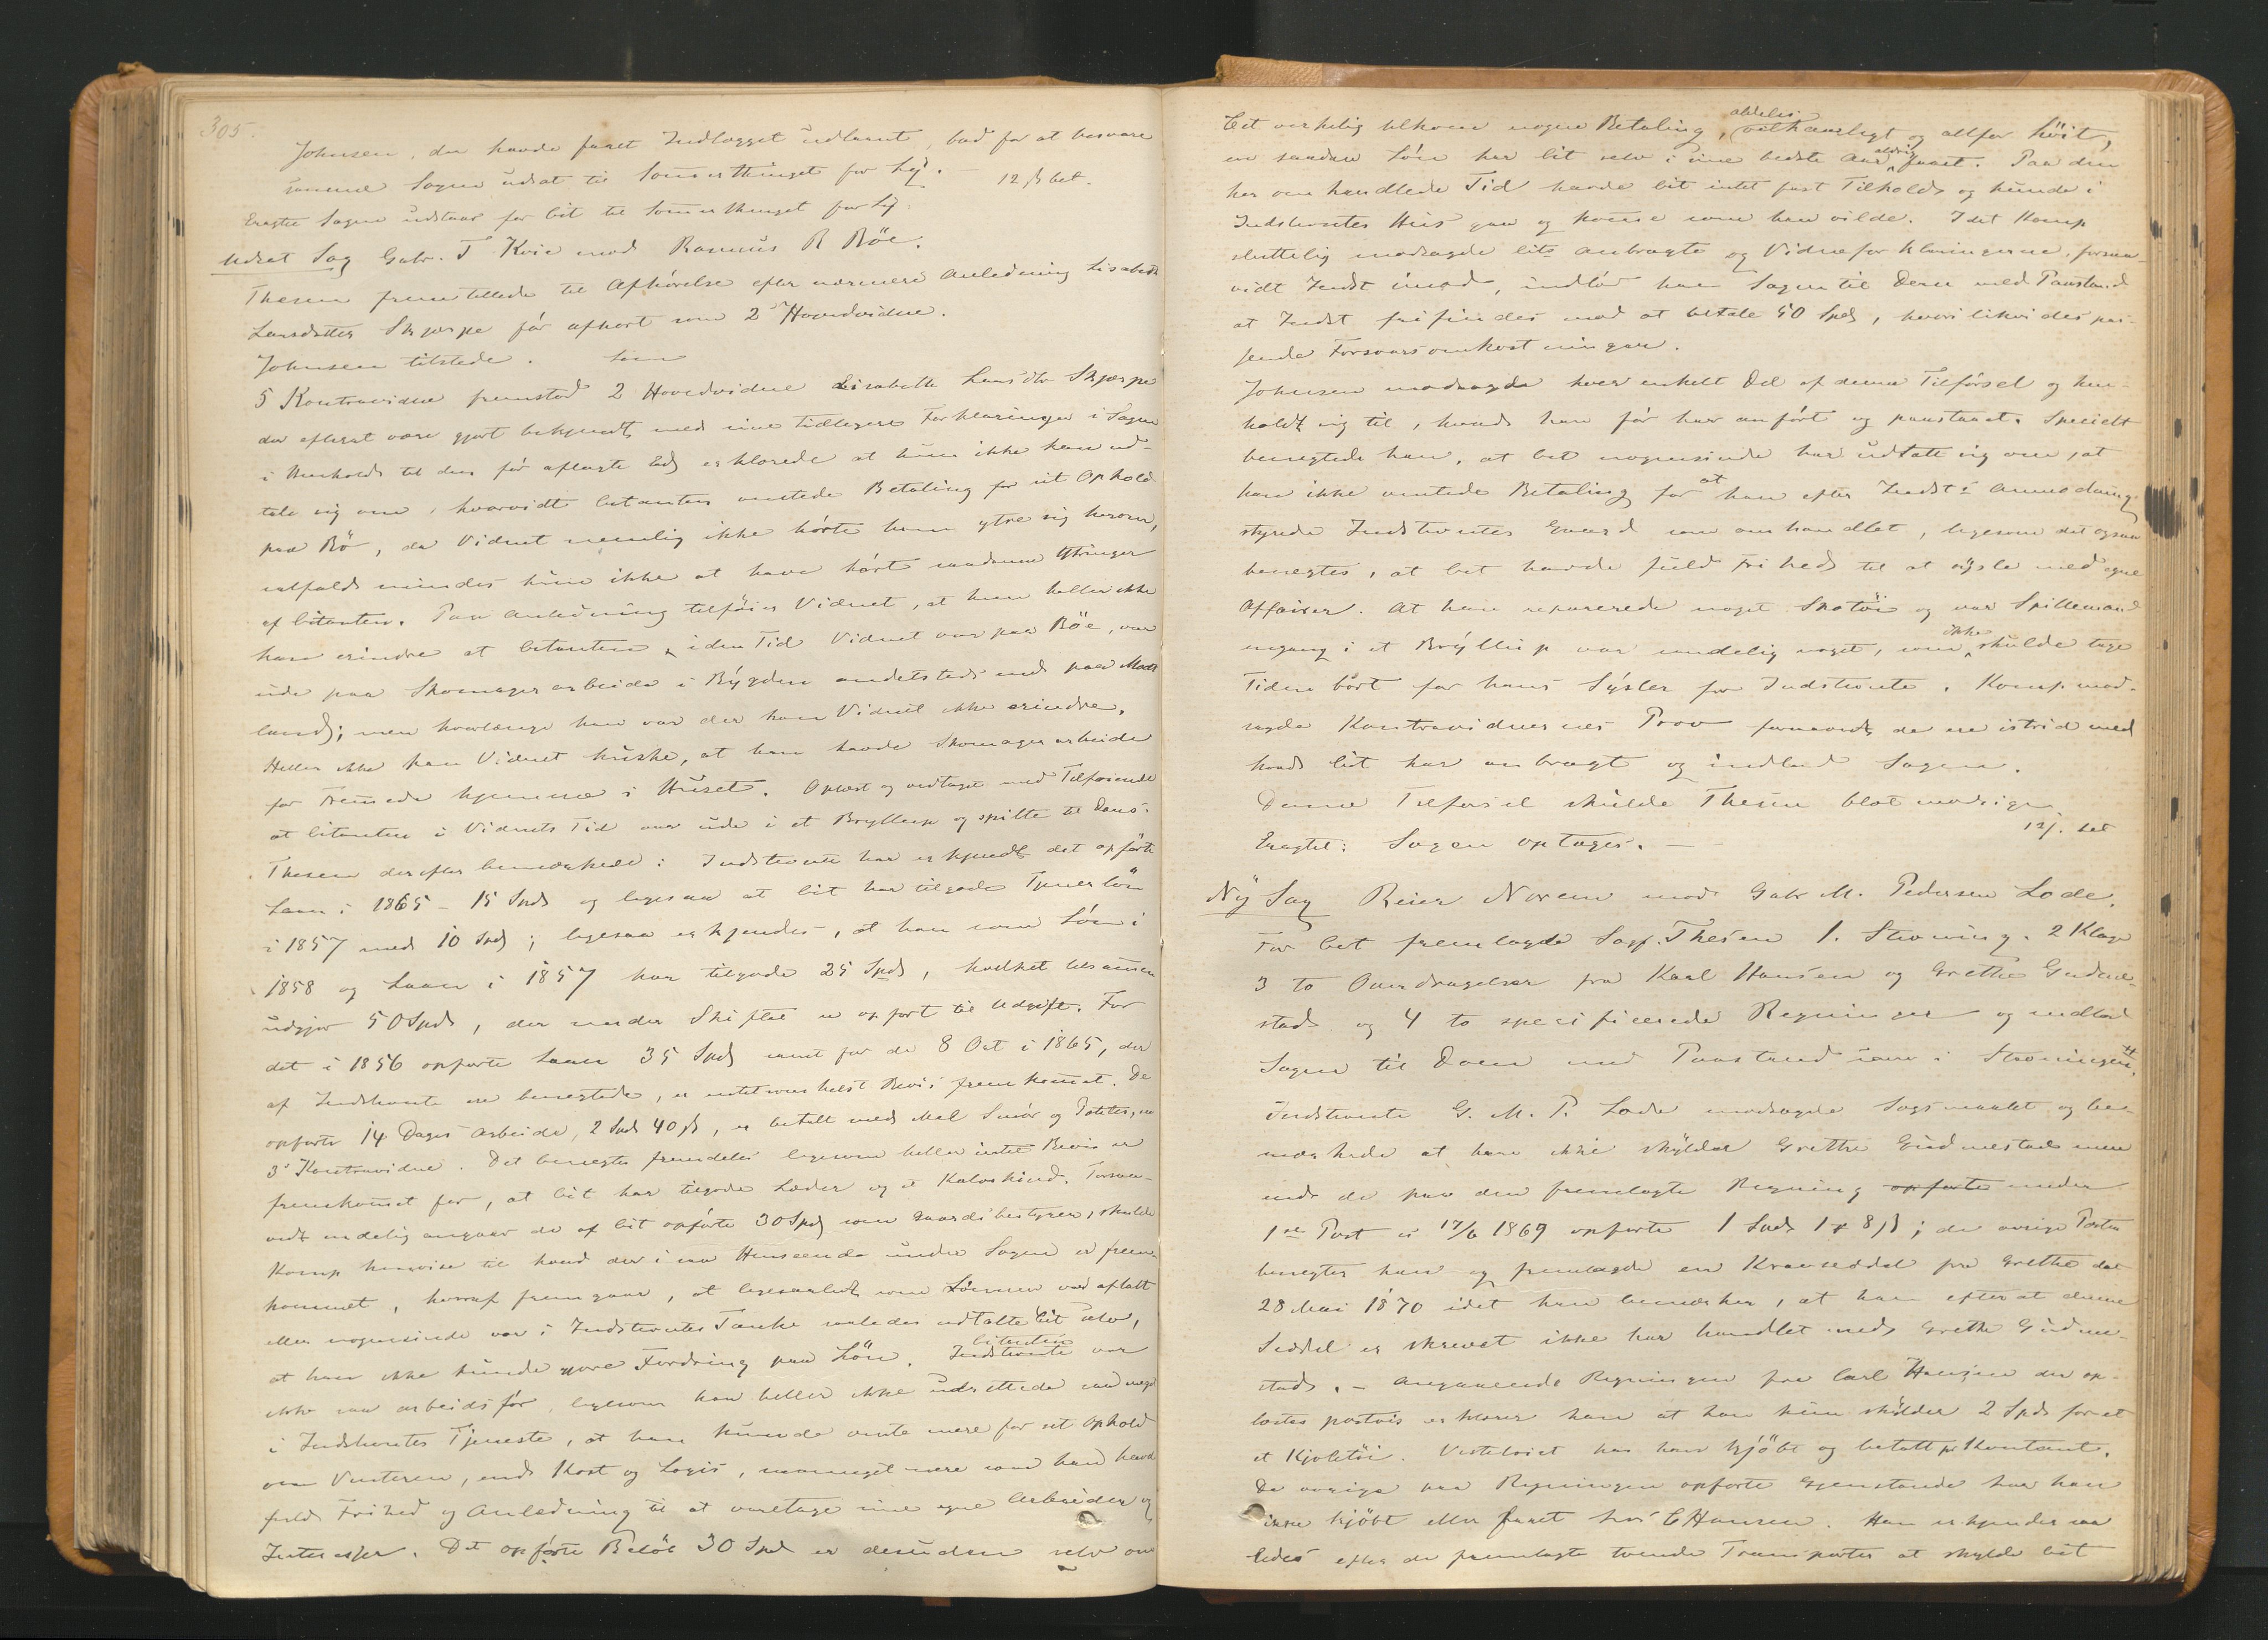 305.
Johnsen, der havde faaet Indlægget udlaant, bad for at besvare
samme Sagen udsat til Sommerthinget for Lij.
12 ß bet.
Eragtet Sagen udstaar for Cit til Sommerthinget for Lij
Udsat Sag Gabr. T Kvie mod Rasmus R Böe.
Thesen fremstillede til Afhörelse efter nærmere Anledning Lisabeth
Larsdatter Skjærpe för afhört som 2d Hovedvidne.
Johnsen tilstede. Som
5 Kontravidne fremstod 2 Hovedvidne Lisabeth Larsdtr Skjærpe
der efterat være gjort bekjendt med sine tidligere Forklaringer i Sagen
i Henhold til den för aflagte Ed erklærede at hun ikke kan ud-
tale sig om, hvorvidt Citanten ventede Betaling for sit Ophold
paa Bö, da Vidnet nemlig ikke hörte ham ytre sig herom,
ialfald mindes hun ikke at have hört saadanne Ytringer
af Citanten. Paa Anledning tilföier Vidnet, at hun heller ikke
kan erindre at Citanten, i den Tid Vidnet var paa Böe, var
ude paa Skomagerarbeide i Bÿgden andetsteds end paa Mod-
land; men hvorlænge han var der kan Vidnet ikke erindre.
Heller ikke kan Vidnet huske, at han havde Skomagerarbeide
for Fremmede hjemme i Huset. Oplæst og vedtaget med Tilföiende
at Citanten i Vidnets Tid var ude i et Bryllup og spillte til Dans.
Thesen derefter bemærkede: Indstevnte har erkjendt det opförte
Laan i 1865 - 15 Spd og ligesaa at Cit har tilgode Tjenerlön
i 1857 med 10 Spd; ligesaa erkjendes, at han som Lön i
1858 og Laan i 1857 har tilgode 25 Spd, hvilket tilsammen
udgjör 50 Spd, der under Skiftet er opfört til Udgift. For
det i 1856 opförte Laan 35 Spd samt for de 8 Ort i 1865, der
af Indstevnte ere benegtede, er intetsomhelst Bevis fremkommet. De
opförte 14 Dages Arbeide, 2 Spd 40 ß, er betalt med Mel Smör og Poteter, se
3d Kontravidne. Det benegtes fremdeles ligesom heller intet Bevis er
fremkommet for, at Cit har tilgode Læder og et Kalveskind. Forsaa-
vidt endelig angaar de af Cit opförte 30 Spd som Gaardsbestyrer, skulde
Komp henvise til hvad der i saa Henseende under Sagen er frem-
kommet, hvoraf fremgaar, at ligesaalidt som Lönnen var aftalt
eller nogensinde var i Indstevntes Tanke saaledes udtalte Cit selv,
at han ikke kunde gjöre Fordring paa Lön. Indstevnte Citanten var
ikke saa arbeidsför, ligesom han heller ikke udrettede saa meget
i Indstevntes Tjeneste, at han kunde vente mere for sit Ophold
om Vinteren, end Kost og Logis, saameget mere som han havde
fuld Frihed og Anledning til at varetage sine egne Arbeider og
Interesser. Det opförte Belöb 30 Spd er desuden selv om
Cit virkelig tilkom nogen Betaling, aldeles vilkaarligt og altfor höit,
en saadan Lön har Cit selv i sine bedste Aar aldrig faaet. Paa den
her omhandlede Tid havde Cit intet fast Tilhold og kunde i
Indstevntes Hus gaa og komme som han vilde. Idet Komp
sluttelig modsagde Cits Anbragte og Vidneforklaringerne, forsaa-
vidt Indst imod, indlod han Sagen til Dom med Paastand
at Indst frifindes mod at betale 50 Spd, hvori likvideres pas-
sende Forsvarsomkostninger.
Johnsen modsagde hver enkelt Del af denne Tilförsel og hen-
holdt sig til, hvad han för har anfört og paastaaet. Specielt
benegtede han, at Cit nogensinde har udtalt sig om, at
han ikke ventede Betaling for at han efter Indsts Anmodning
styrede Indstevntes Gaard som omhandlet, ligesom det ogsaa
benegtes, at Cit havde fuld Frihed til at sÿsle med egne
Affairer. At han reparerede noget Skotöi og var Spillemand
engang i et Brÿllup var endelig noget, som ikke skulde tage
Tiden bort for hans Sÿsler for Indstevnte. Komp. mod-
sagde Kontravidnernes Prov forsaavidt de ere istrid med
hvad Cit har anbragt og indlod Sagen.
Denne Tilförsel skulde Thesen blot modsige
12 ß. bet
Eragtet: Sagen optages. —
Nÿ Sag Reier Noreim mod Gabr M. Pedersen Lode.
For Cit fremlagde Sagf. Thesen 1. Stevning. 2 Klage
3 to Overdragelser fra Karl Hansen og Grethe Gudme-
stad og 4 to specificerede Regninger og indlod
Sagen til Dom med Paastand som i Stevningen.
Indstevnte G. M. P. Lode modsagde Sagsmaalet og be-
mærkede at han ikke skÿlder Grethe Gudmestad mere
end de paa den fremlagte Regning opförte under
1ste Post ss 17/6 1869 opförte 1 Spd 1 ort 8 ß; de övrige Poster
benegter han og fremlagde en Kravseddel fra Grethe dat
28 Mai 1870 idet han bemærker, at han efterat denne
Seddel er skrevet ikke har handlet med Grethe Gudme-
stad. - Angaaende Regningen fra Carl Hansen der op-
læstes postvis erklærer han at han kun skÿlder 2 Spd for et
et Kjoletöi. Vestetöiet har han kjöbt og betalt pr Kontant.
De övrige paa Regningen opförte Gjenstande har han
ikke kjöbt eller faaet hos C Hansen. Han erkjender saa
ledes efter de fremlagte tvende Transporter at skylde Cit